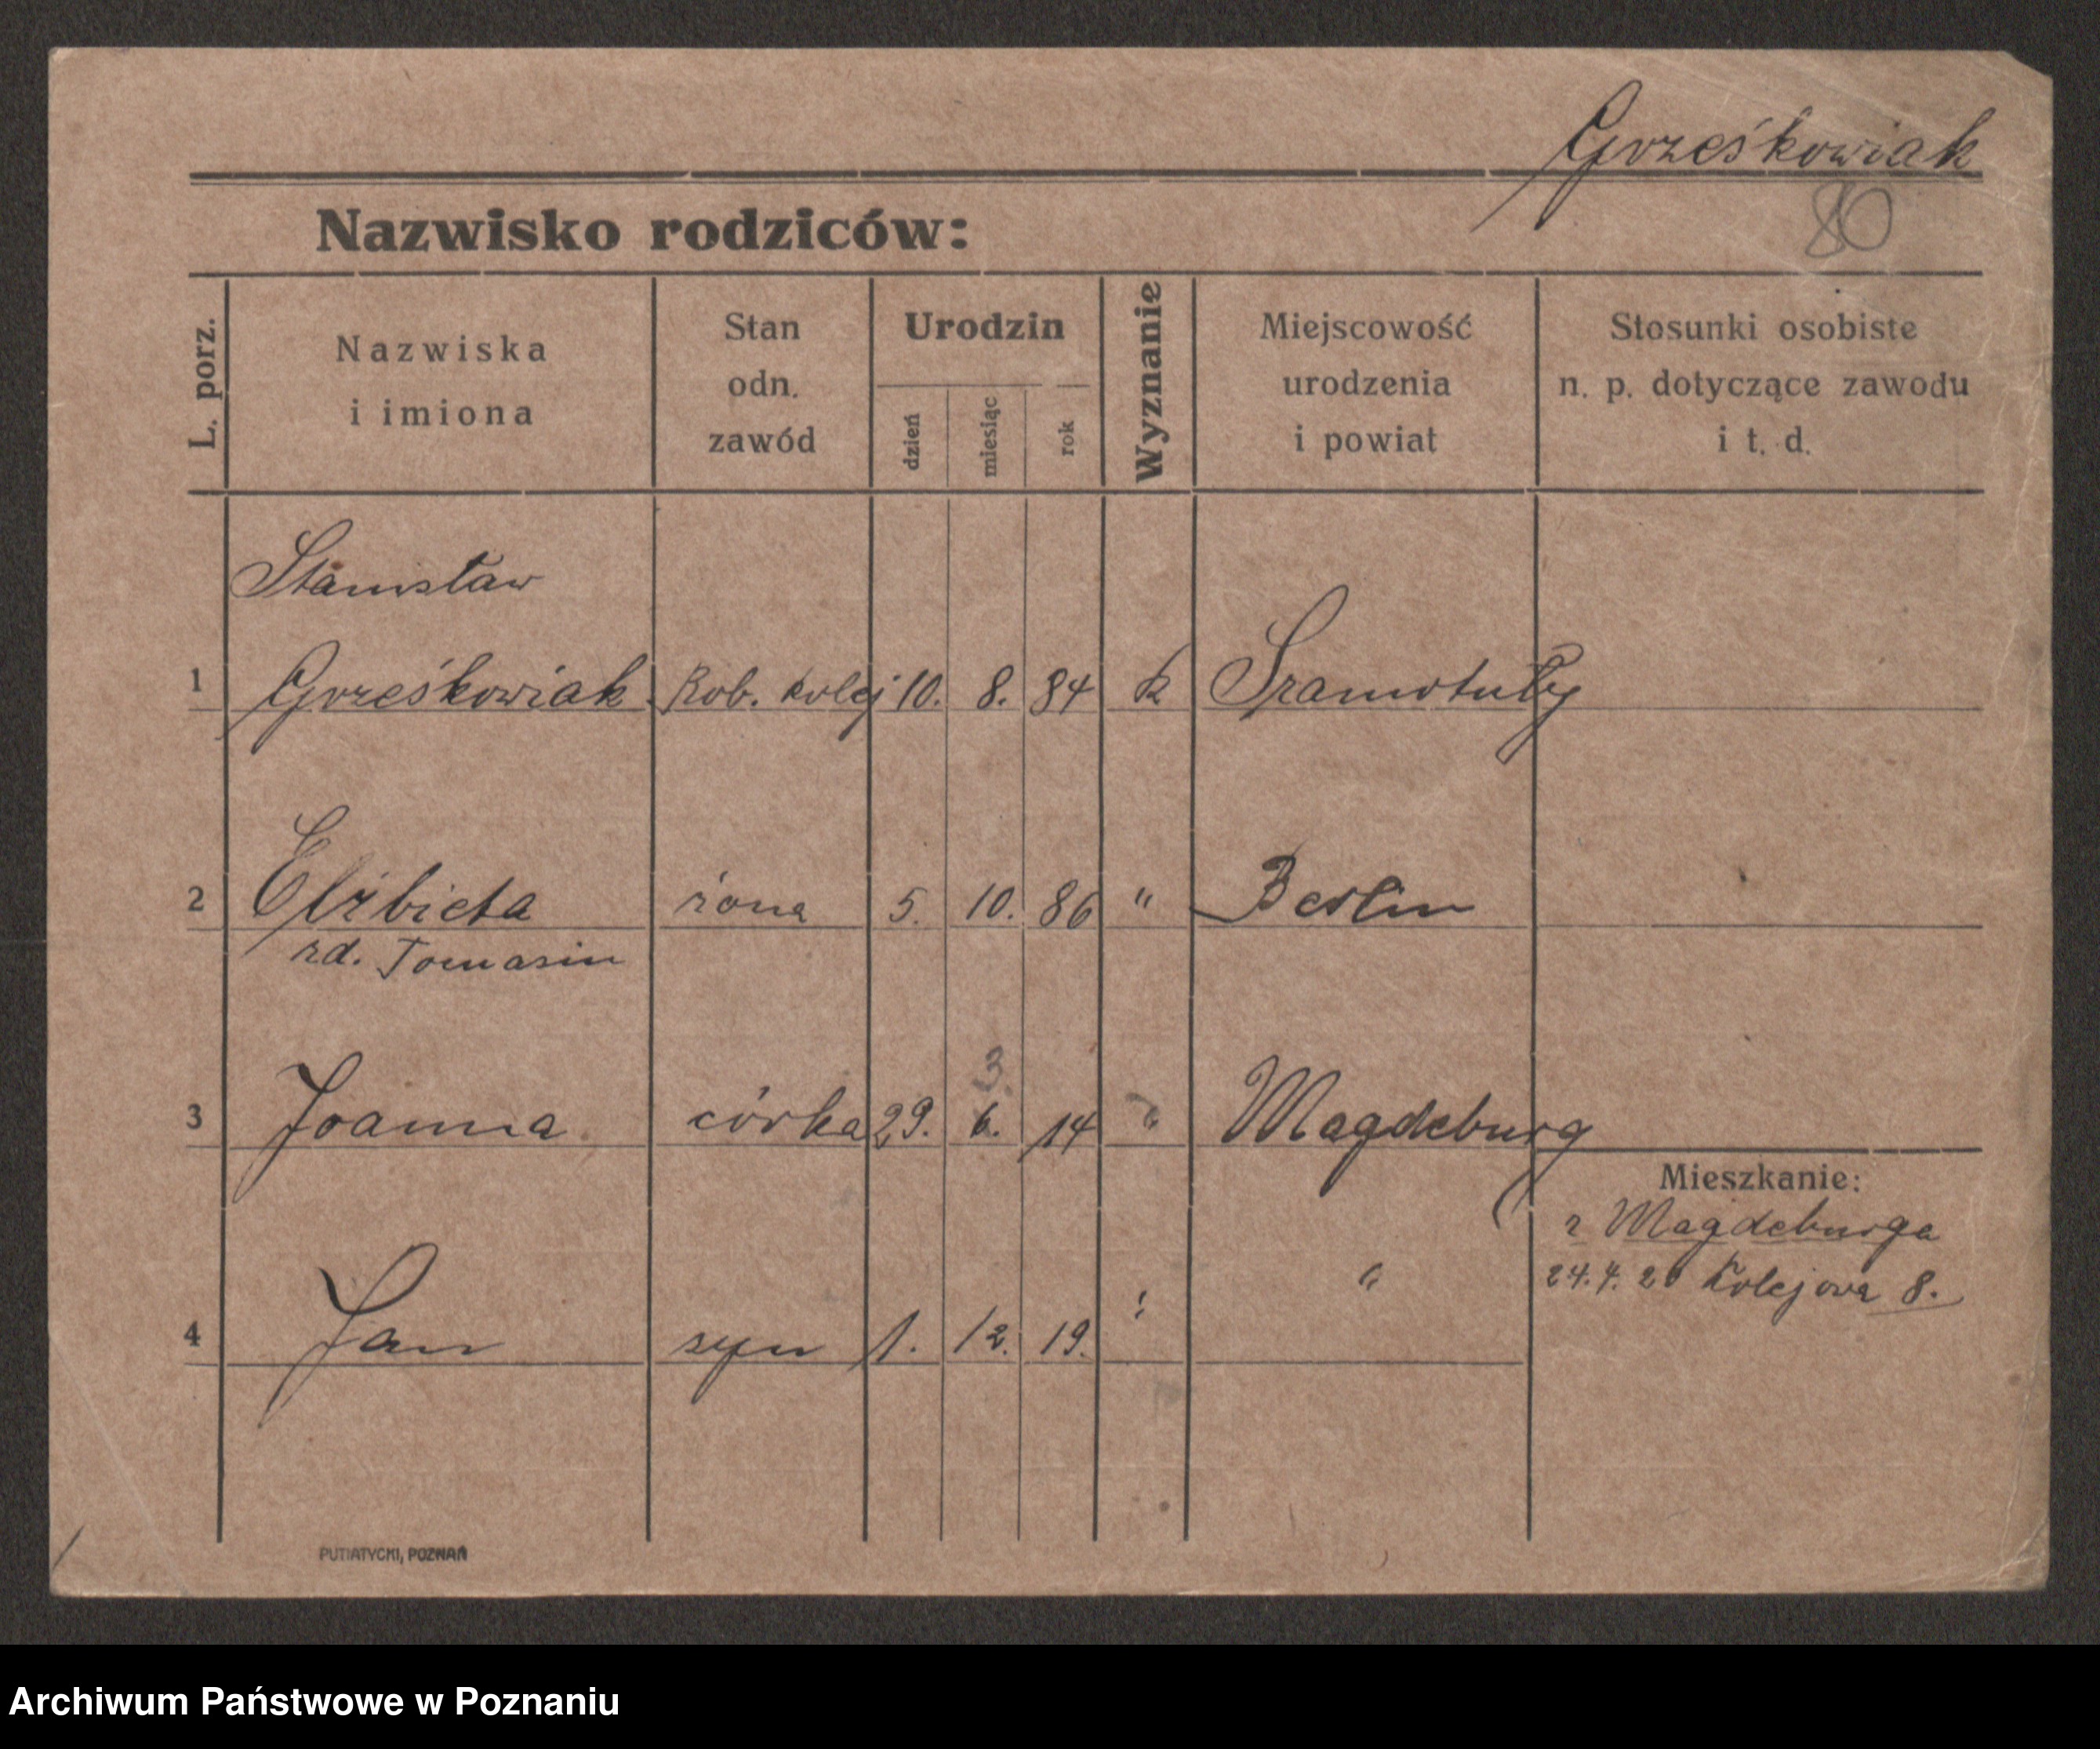 Grześkowiak
80
Nazwisko rodziców:
L. porz.
Nazwiska
i imiona
Stan
odn.
zawód
Urodzin
dzień
miesiąc
rok
Wyznanie
Miejscowość
urodzenia
i powiat
Stosunki osobiste
n. p. dotyczące zawodu
i t. d.
Stanisław
1 Grześkowiak Rob. kolej 10. 8. 84 k Szamotuły
2 Elżbieta żona 5. 10. 86 " Berlin
zd. Tomasin
3
3 Joanna córka 29. 6. 14 " Magdeburg
Mieszkanie:
z Magdeburga
24.4.20 Kolejowa 8.
4 Jan syn 1. 12. 19. " "
PUTIATYCKI, POZNAŃ
Archiwum Państwowe w Poznaniu